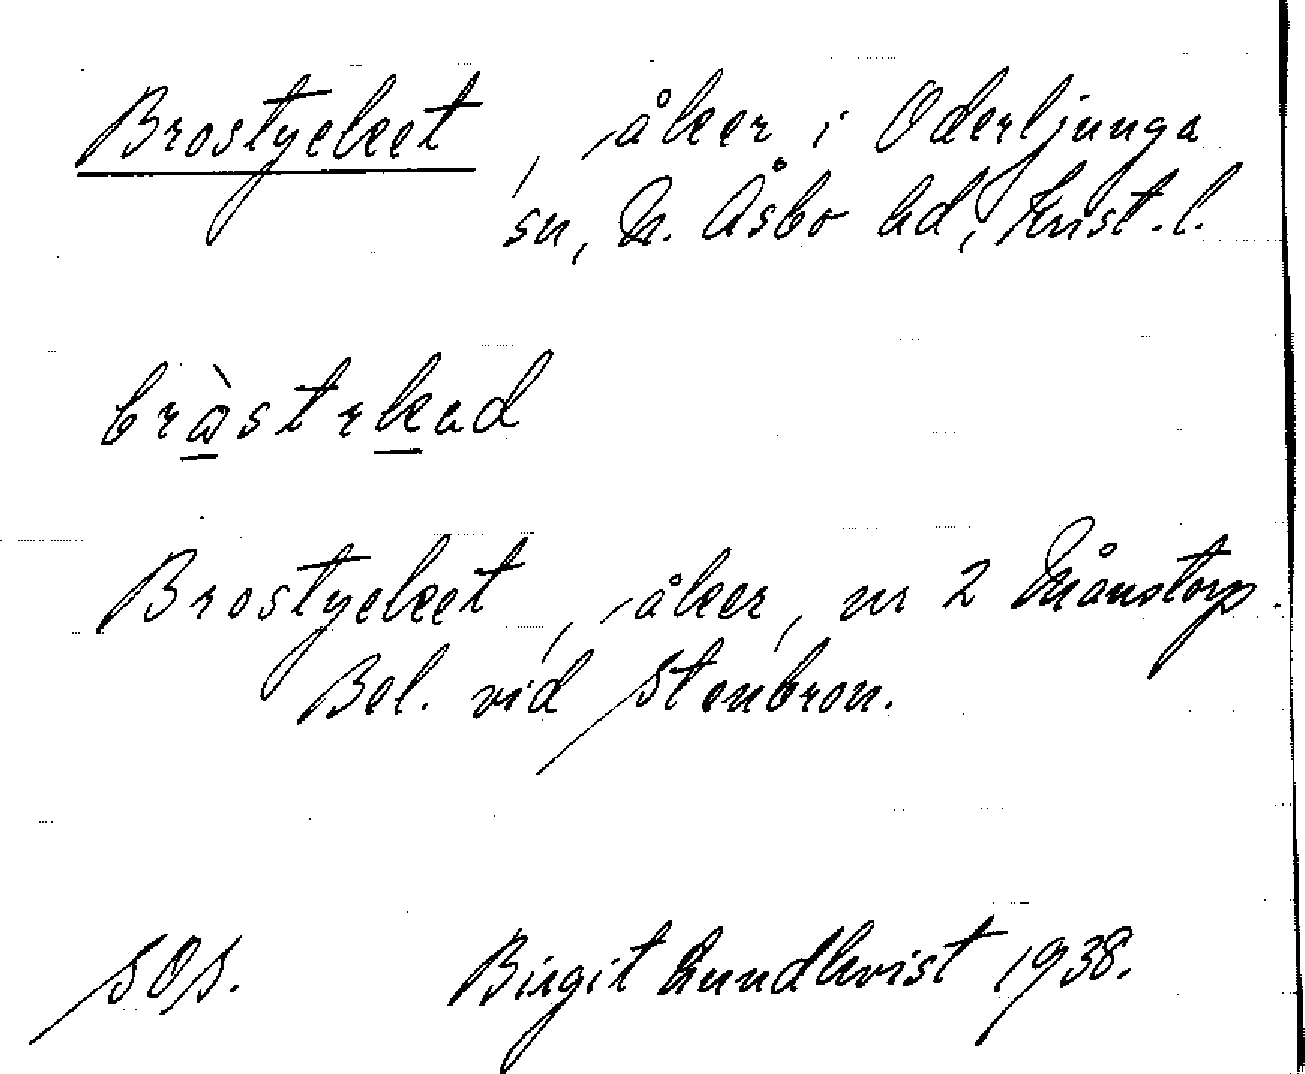 Brostycket, åker i Oderljunga
sn, N. Åsbo hd, Krist. l.
Brostycket, åker, nr 2 Månstorp.
Bel. vid Stenbron.
SOS. Birgit Lundkvist 1938.